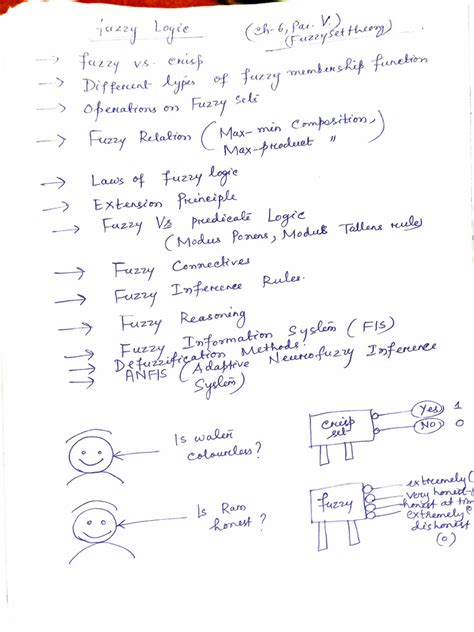 fuzzy Logic (Ch-6, Par. V.)
(Fuzzy Set theory)
→ fuzzy vs. crisp
→ Different types of fuzzy membership function
→ Operations on Fuzzy Sets
→ Fuzzy Relation (Max-min Composition,
Max-product ")
→ Laws of fuzzy logic
→ Extension Principle
→ Fuzzy Vs predicate Logic
(Modus Ponens, Modus Tallens rule)
→ Fuzzy Connectives
→ Fuzzy Inference Rules.
→ Fuzzy Reasoning
→ Fuzzy Information System (FIS)
→ Defuzzification Methods.
→ ANFIS (Adaptive Neurofuzzy Inference
System)
Is water
colourless?
crisp
set
Yes 1
No 0
Is Ram
honest?
fuzzy
extremely (
very honest
honest at tim
extremely
dishonest
(0)